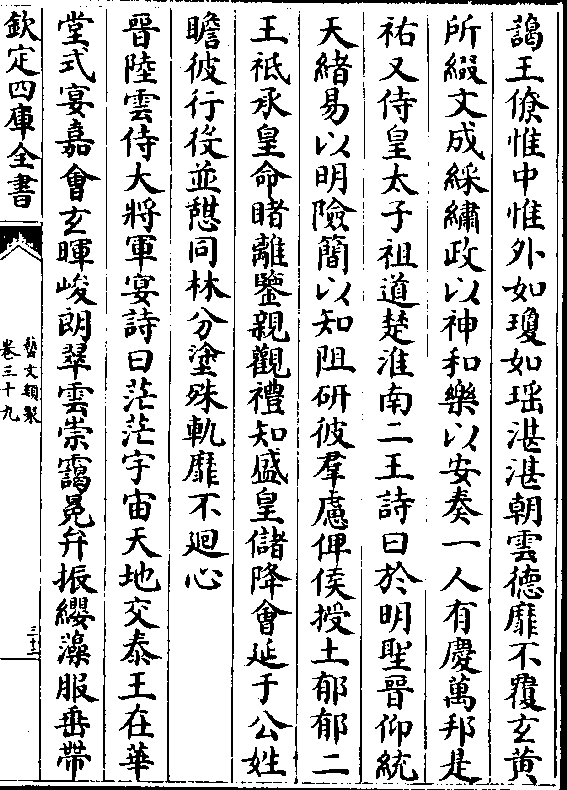 藹王僚惟中惟外如瓊如瑶湛湛朝雲德靡不覆玄黄
所綴文成綵繡政以神和樂以安奏一人有慶萬邦是
祐又侍皇太子祖道楚淮南二王詩曰於明聖晉仰統
天緒易以明險簡以知阻研彼羣慮俾侯授土郁郁二
王祗承皇命睹離鑒親觀禮知盛皇儲降會延于公姓
瞻彼行役並憇同林分塗殊軌靡不廻心
晉陸雲侍大將軍宴詩曰茫茫宇宙天地交泰王在華
堂式宴嘉會玄暉峻朗翠雲崇靄冕弁振纓藻服垂帶
欽定四庫全書
藝文類聚
卷三十九